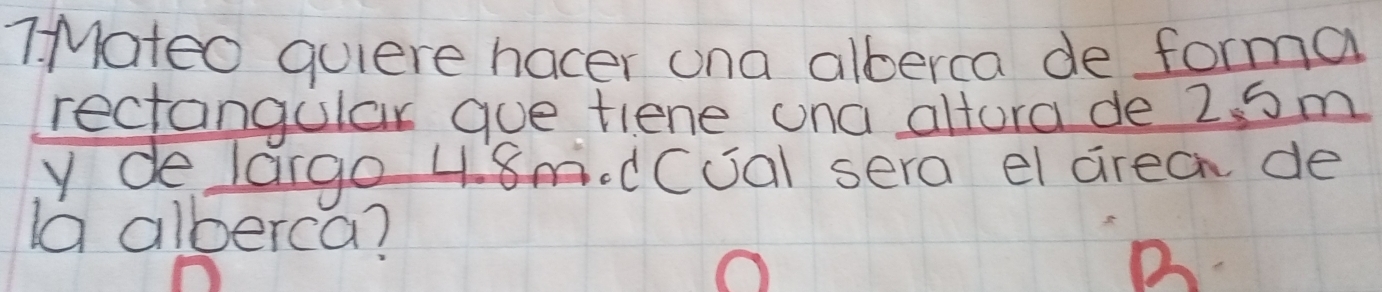 7. Mateo quiere hacer una alberca de forma
rectangular que tiene una altura de 2.5m
y de largo 4.8m. ¿Cúal sera el área de
la alberca?
D O B